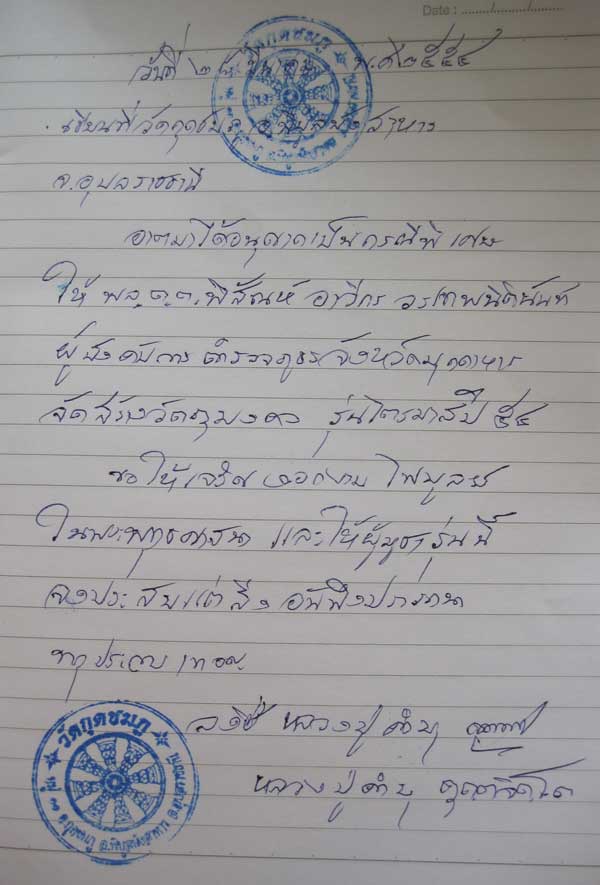 Date : ......../........./.........
วันที่ ๒๘ มีนาคม พ.ศ ๒๕๕๔
เขียนที่วัดกุดชมภู อ.พิบูลมังสาหาร
จ.อุบลราชธานี
อาตมาได้อนุญาตเป็นกรณีพิเศษ
ให้ พล.ต.ต. พิสัณห์ อาวีกร วรเทพนิตินันท์
ผู้บังคับการตำรวจภูธรจังหวัดมุกดาหาร
จัดสร้างวัตถุมงคล รุ่นไตรมาสปี ๕๔
ขอให้เจริญงอกงาม ไพบูลย์
ในพระพุทธศาสนา และให้ผู้บูชารุ่นนี้
จงประสบแต่สิ่งอันพึงปรารถนา
ทุกประการ เทอญ
ลงชื่อ หลวงปู่คำบุ
หลวงปู่คำบุ คุตฺตจิตฺโต
วัดกุดชมภู